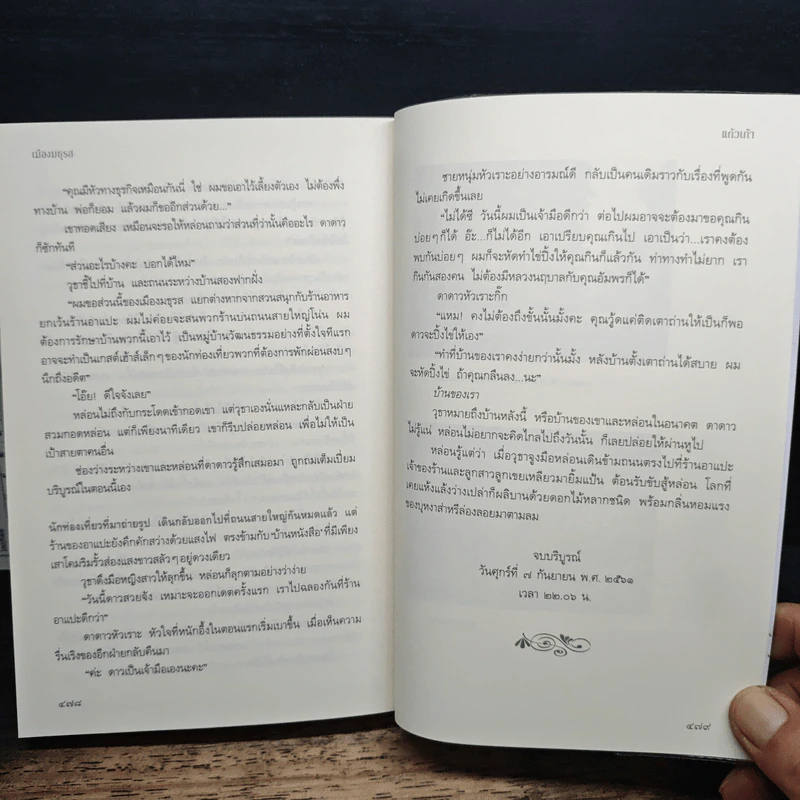 เมืองมธุรส
“คุณมีหัวทางธุรกิจเหมือนกันนี่ ใช่ ผมขอเอาไว้เลี้ยงตัวเอง ไม่ต้องพึ่ง
ทางบ้าน พ่อก็ยอม แล้วผมก็ขออีกส่วนด้วย...”
เขาทอดเสียง เหมือนจะรอให้หล่อนถามว่าส่วนที่ว่านั้นคืออะไร ดาดาว
ก็ซักทันที
“ส่วนอะไรบ้างคะ บอกได้ไหม”
วุธาชี้ไปที่บ้าน และถนนระหว่างบ้านสองฟากฝั่ง
“ผมขอส่วนนี้ของเมืองมธุรส แยกต่างหากจากสวนสนุกกับร้านอาหาร
ยกเว้นร้านอาแปะ ผมไม่ค่อยจะสนพวกร้านบนถนนสายใหญ่โน่น ผม
ต้องการรักษาบ้านพวกนี้เอาไว้ เป็นหมู่บ้านวัฒนธรรมอย่างที่ตั้งใจทีแรก
อาจจะทำเป็นเกสต์เฮ้าส์เล็กๆของนักท่องเที่ยวพวกที่ต้องการพักผ่อนสงบๆ
นึกถึงอดีต”
“โอ๊ย! ดีใจจังเลย”
หล่อนไม่ถึงกับกระโดดเข้ากอดเขา แต่วุธาเองนั่นแหละกลับเป็นฝ่าย
สวมกอดหล่อน แต่ก็เพียงนาทีเดียว เขาก็รีบปล่อยหล่อน เพื่อไม่ให้เป็น
เป้าสายตาคนอื่น
ช่องว่างระหว่างเขาและหล่อนที่ดาดาวรู้สึกเสมอมา ถูกถมเต็มเปี่ยม
บริบูรณ์ในตอนนี้เอง
นักท่องเที่ยวที่มาถ่ายรูป เดินกลับออกไปที่ถนนสายใหญ่กันหมดแล้ว แต่
ร้านของอาแปะยังคึกคักสว่างด้วยแสงไฟ ตรงข้ามกับ‘บ้านหนังสือ’ที่มีเพียง
เสาโคมริมรั้วส่องแสงขาวสลัวๆอยู่ดวงเดียว
วุธาดึงมือหญิงสาวให้ลุกขึ้น หล่อนก็ลุกตามอย่างว่าง่าย
“วันนี้ดาวสวยจัง เหมาะจะออกเดตครั้งแรก เราไปฉลองกันที่ร้าน
อาแปะดีกว่า”
ดาดาวหัวเราะ หัวใจที่หนักอึ้งในตอนแรกเริ่มเบาขึ้น เมื่อเห็นความ
รื่นเริงของอีกฝ่ายกลับคืนมา
“ค่ะ ดาวเป็นเจ้ามือเองนะคะ”
๔๗๘
แก้วเก้า
ชายหนุ่มหัวเราะอย่างอารมณ์ดี กลับเป็นคนเดิมราวกับเรื่องที่พูดกัน
ไม่เคยเกิดขึ้นเลย
“ไม่ได้ซี วันนี้ผมเป็นเจ้ามือดีกว่า ต่อไปผมอาจจะต้องมาขอคุณกิน
บ่อยๆก็ได้ อ๊ะ...ก็ไม่ได้อีก เอาเปรียบคุณเกินไป เอาเป็นว่า...เราคงต้อง
พบกันบ่อยๆ ผมก็จะหัดทำไข่ปิ้งให้คุณกินก็แล้วกัน ท่าทางทำไม่ยาก เรา
กินกันสองคน ไม่ต้องมีหลวงนฤบาลกับคุณอัมพรก็ได้”
ดาดาวหัวเราะกิ๊ก
“แหม! คงไม่ต้องถึงขั้นนั้นมั้งคะ คุณวู้ดแค่ติดเตาถ่านให้เป็นก็พอ
ดาวจะปิ้งไข่ให้เอง”
“ทำที่บ้านของเราคงง่ายกว่านั้นมั้ง หลังบ้านตั้งเตาถ่านได้สบาย ผม
จะหัดปิ้งไข่ ถ้าคุณกลืนลง...นะ”
บ้านของเรา
วุธาหมายถึงบ้านหลังนี้ หรือบ้านของเขาและหล่อนในอนาคต ดาดาว
ไม่รู้แน่ หล่อนไม่อยากจะคิดไกลไปถึงวันนั้น ก็เลยปล่อยให้ผ่านหูไป
หล่อนรู้แต่ว่า เมื่อวุธาจูงมือหล่อนเดินข้ามถนนตรงไปที่ร้านอาแปะ
เจ้าของร้านและลูกสาวลูกเขยเหลียวมายิ้มแป้น ต้อนรับขับสู้หล่อน โลกที่
เคยแห้งแล้งว่างเปล่าก็ผลิบานด้วยดอกไม้หลากชนิด พร้อมกลิ่นหอมแรง
ของบุหงาส่าหรีล่องลอยมาตามลม
จบบริบูรณ์
วันศุกร์ที่ ๗ กันยายน พ.ศ. ๒๕๖๑
เวลา ๒๒.๐๖ น.
๔๗๙